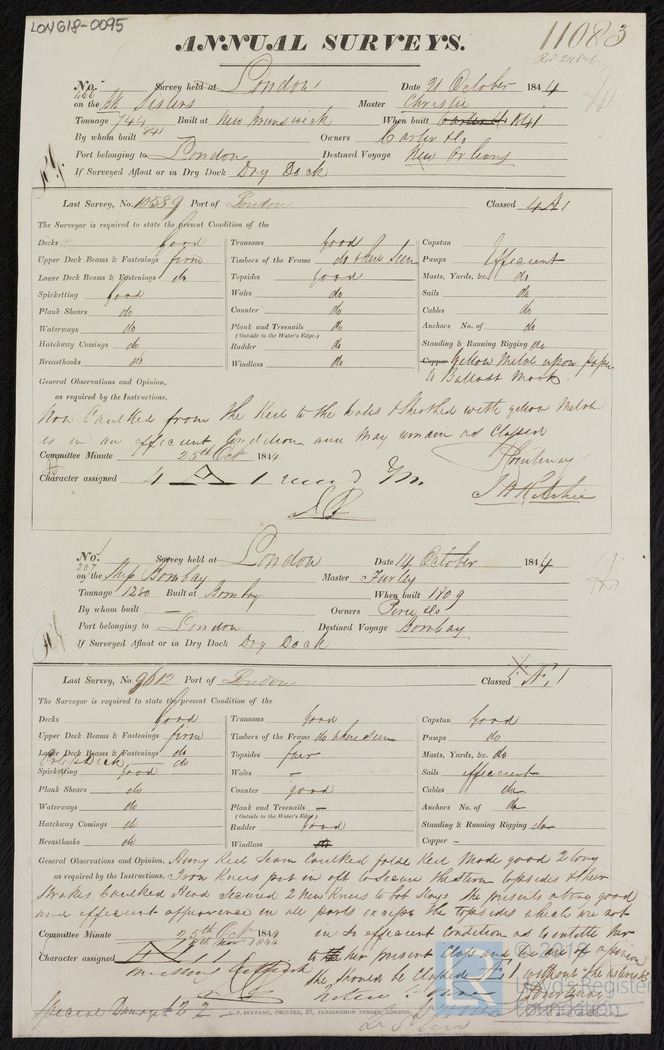 LON618-0095
ANNUAL SURVEYS.
11083
No. 466 Survey held at London Date 21 October 1844
on the Sisters Master Christie
Tonnage 744 Built at New Brunswick When built 1841
841
By whom built Owners Carter & Co
Port belonging to London Destined Voyage New Orleans
If Surveyed Afloat or in Dry Dock Dry Dock
Last Survey, No. 10589 Port of London Classed 4 A 1
The Surveyor is required to state the present Condition of the
Decks Good
Upper Deck Beams & Fastenings firm
Lower Deck Beams & Fastenings do
Spirketting Good
Plank Shears do
Waterways do
Hatchway Comings do
Breasthooks do
Transoms Good
Timbers of the Frame do where seen
Topsides Good
Wales do
Counter do
Plank and Treenails do
(Outside to the Water's Edge.)
Rudder do
Windlass do
Capstan
Pumps Efficient
Masts, Yards, &c. do
Sails do
Cables do
Anchors No. of do
Standing & Running Rigging do
Copper Yellow Metal upon paper
to Ballast Mark
General Observations and Opinion,
as required by the Instructions.
Now Caulked from the Keel to the Wales & Sheathed with yellow Metal
is in an efficient Condition and may remain as Classed
Committee Minute 25th Oct 1844
Character assigned 4 A 1
No. 227 Survey held at London Date 14 October 1844
on the Ship Bombay Master Furley
Tonnage 1280 Built at Bombay When built 1809
By whom built — Owners
Port belonging to London Destined Voyage Bombay
If Surveyed Afloat or in Dry Dock Dry Dock
Last Survey, No. 9612 Port of London Classed
The Surveyor is required to state the present Condition of the
Decks Good
Upper Deck Beams & Fastenings firm
Lower Deck Beams & Fastenings do
Orlop Deck — do
Spirketting good
Plank Shears do
Waterways do
Hatchway Comings do
Breasthooks do
Transoms Good
Timbers of the Frame do where seen
Topsides fair
Wales —
Counter good
Plank and Treenails —
(Outside to the Water's Edge)
Rudder good
Windlass
Capstan Good
Pumps do
Masts, Yards, &c. do
Sails efficient
Cables do
Anchors No. of do
Standing & Running Rigging do
Copper -
General Observations and Opinion, Keel Seam Caulked false Keel Made good 2 long
as required by the Instructions, Iron Knees put in aft to secure the stern topsides & other
Strakes Caulked Head Secured 2 New Knees to She presents a very good
and efficient appearance in all parts except the topsides which are not
Committee Minute 25th Oct 1844 in so efficient condition as to entitle her
5th Nov 1844
Character assigned to her present Class and I am of opinion
She should be Classed 1 without the
Special Damage £2 2
G. F. SEYFANG, PRINTER, 57, FARRINGDON STREET, LONDON.
© 2018
Lloyd's Register
Foundation
LR